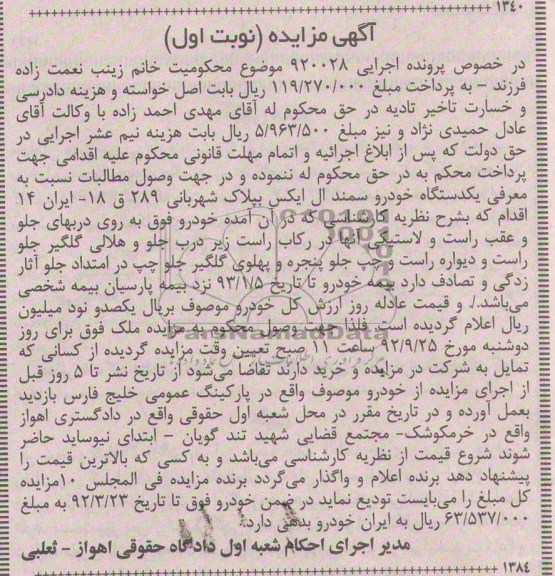 ۱۳۴۰
آگهی مزایده (نوبت اول)
در خصوص پرونده اجرایی ۹۲۰۰۲۸ موضوع محکومیت خانم زینب نعمت زاده
فرزند – به پرداخت مبلغ ۱۱۹/۲۷۰/۰۰۰ ریال بابت اصل خواسته و هزینه دادرسی
و خسارت تاخیر تادیه در حق محکوم له آقای مهدی احمد زاده با وکالت آقای
عادل حمیدی نژاد و نیز مبلغ ۵/۹۶۳/۵۰۰ ریال بابت هزینه نیم عشر اجرایی در
حق دولت که پس از ابلاغ اجرائیه و اتمام مهلت قانونی محکوم علیه اقدامی جهت
پرداخت محکم به در حق محکوم له ننموده و در جهت وصول مطالبات نسبت به
معرفی یکدستگاه خودرو سمند ال ایکس بپلاک شهربانی ۲۸۹ ق ۱۸- ایران ۱۴
اقدام که بشرح نظریه کارشناسی که در آن آمده خودرو فوق به روی دربهای جلو
و عقب راست و لاستیکی آنها در رکاب راست زیر درب جلو و هلالی گلگیر جلو
راست و دیواره راست و چپ جلو پنجره و پهلوی گلگیر جلو چپ در امتداد جلو آثار
زدگی و تصادف دارد بیمه خودرو تا تاریخ ۹۳/۱/۵ نزد بیمه پارسیان بیمه شخصی
می‌باشد./. و قیمت عادله روز ارزش کل خودرو موصوف بریال یکصدو نود میلیون
ریال اعلام گردیده است. فلذا جهت وصول محکوم به مزایده ملک فوق برای روز
دوشنبه مورخ ۹۲/۹/۲۵ ساعت ۱۱ صبح تعیین وقت مزایده گردیده از کسانی که
تمایل به شرکت در مزایده و خرید دارند تقاضا می‌شود از تاریخ نشر تا ۵ روز قبل
از اجرای مزایده از خودرو موصوف واقع در پارکینگ عمومی خلیج فارس بازدید
بعمل آورده و در تاریخ مقرر در محل شعبه اول حقوقی واقع در دادگستری اهواز
واقع در خرمکوشک- مجتمع قضایی شهید تند گویان – ابتدای نیوساید حاضر
شوند شروع قیمت از نظریه کارشناسی می‌باشد و به کسی که بالاترین قیمت را
پیشنهاد دهد برنده اعلام و واگذار می‌گردد برنده مزایده فی المجلس ۱۰مزایده
کل مبلغ را می‌بایست تودیع نماید در ضمن خودرو فوق تا تاریخ ۹۲/۳/۲۳ به مبلغ
۶۳/۵۳۷/۰۰۰ ریال به ایران خودرو بدهی دارد.
مدیر اجرای احکام شعبه اول دادگاه حقوقی اهواز - ثعلبی
۱۳۸۴
ParsNamadData